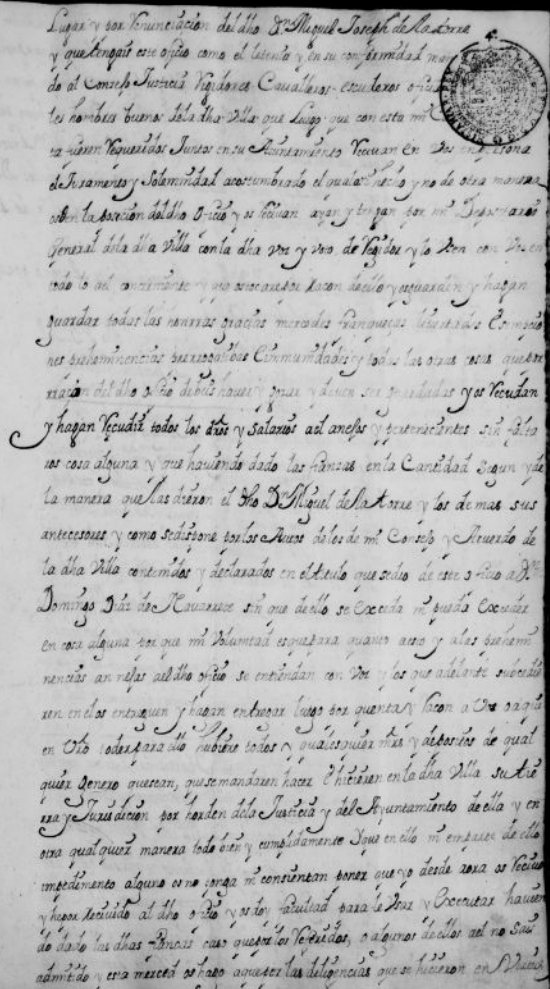 Lugar y por Renunciacion del dho Dn Miguel Joseph de la torre
y que tengais este oficio como el lo tenia y en su conformidad man
do al Consejo Justicia Regidores Cavalleros escuderos oficia
les hombres buenos de la dha Villa que luego que con esta mi C
ta fueren Requeridos Juntos en su Ayuntamiento Recivan en Vos en persona
el Juramento y Solemnidad acostumbrado el qual hecho y no de otra manera
os den la posesion del dho oficio y os Recivan ayan y tengan por mi Depositario
General de la dha Villa con la dha voz y voto de Regidor y lo Usen con Vos en
todo lo a el concerniente y os guarden y hagan
guardar todas las honrras gracias mercedes franquezas livertades Esempcio
nes preheminencias prerrogatibas Ynmunidades y todas las otras cosas que por
razon del dho oficio debeis haver y gozar y deven ser guardadas y os Recudan
y hagan Recudir todos los dros y Salarios a el anejos y pertenecientes sin falta
ros cosa alguna y que haviendo dado las fianzas en la Cantidad segun y de
la manera que las dieron el dho Dn Miguel de la torre y los demas sus
antecesores y como se dispone por los Autos de los de mi Consejo y Acuerdo de
la dha Villa contenidos y declarados en el titulo que se dio de este oficio a Dn
Domingo Diaz de Navarrete sin que de ello se exceda ni pueda exceder
en cosa alguna por que mi Voluntad es que para quanto a esto y a las prehemi
nencias anejas a el dho oficio se entiendan con Vos y los que adelante subcedie
ren en el os entreguen y hagan entregar luego por quenta y Razon a Vos o a quien
en Vro poder para ello hubiere todos y qualesquier mrs y depositos de qual
quier genero que sean, que se mandaren hacer e hicieren en la dha Villa su tie
rra y Jurisdicion por horden de la Justicia y del Ayuntamiento de ella y en
otra qualquier manera todo bien y cumplidamente Y que en ello ni en parte de ello
impedimento alguno os no ponga ni consientan poner que yo desde aora os Recivo
y he por Recivido al dho oficio y os doy facultad para le Usar y Executar havien
do dado las dhas fianzas caso que por los Referidos, o algunos de ellos a el no Seais
admitido y esta merced os hago a que las diligencias que se hicieron en